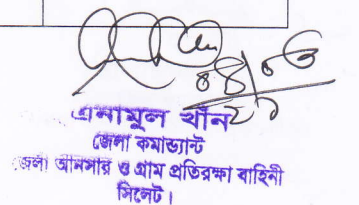 ০৪/০৩
২১
এনামুল খাঁন
জেলা কমান্ড্যান্ট
জেলা আনসার ও গ্রাম প্রতিরক্ষা বাহিনী
সিলেট।